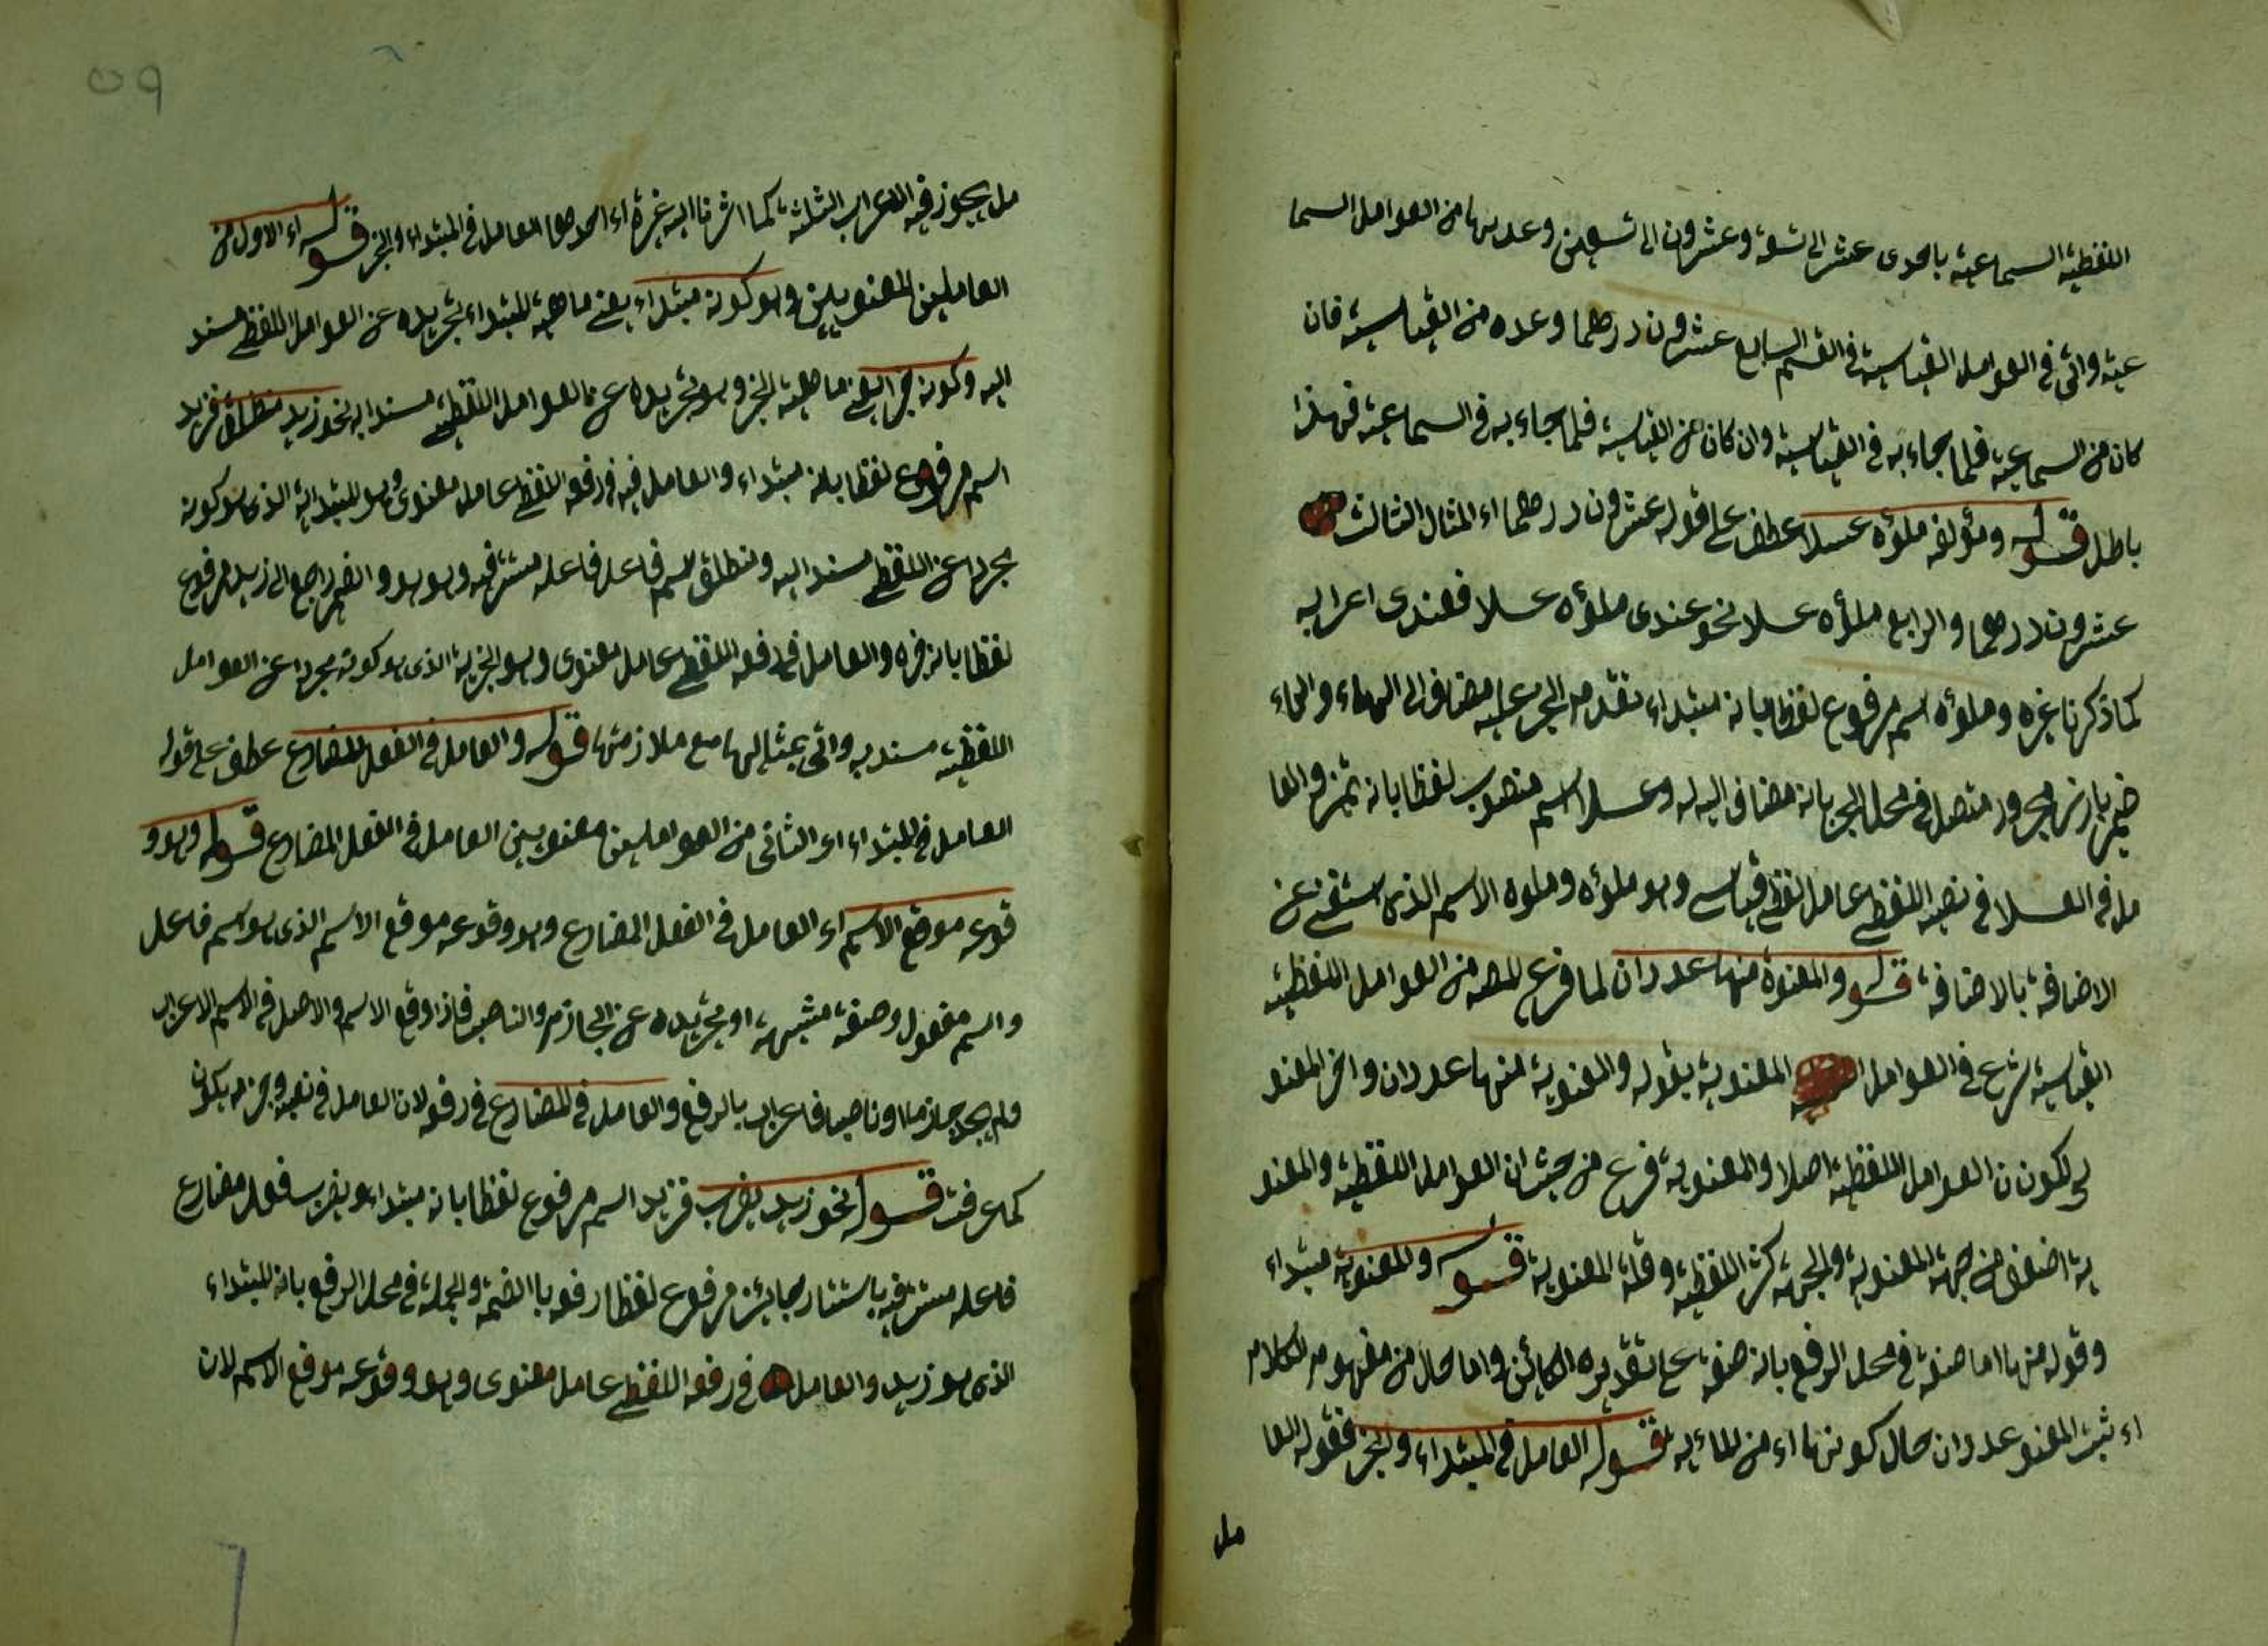 اللفظية السماعية باحدى عشر الى تسعة وعشرون الى تسعين وعد بها من العوامل السما
عية واتى فى العوامل القياسية فى القسم السابع عشرون درهما وعده من القياسية فان
كان من السماعية فلما جاء به فى القياسية وان كان من القياسية فلما جاء به فى السماعية فهذا
باطل قوله ومؤلفه ملؤه عسلا عطف على قوله عشرون درهما اء المثال الثالث
عشرون درهما والرابع ملؤه عسلا نحو عندى ملؤه عسلا فعندى اعرابه
كما ذكرنا غيره وملؤه اسم مرفوع لفظا بانه مبتداء تقدم الخبر عليه مضاف الى الهاء والهاء
ضمير بارز مجرور متصل فى محل الجر بانه مضاف اليه له وعسلا اسم منصوب لفظا بانه تميز والعا
مل فى العسلا فى نصبه اللفظى عامل لفظى قياسى وهو ملؤه وملوه الاسم الذى استغنى عن
الاضافة بالاضافة قوله والمعنوة منها عددان لما فرغ المص من العوامل اللفظية
القياسية شرع فى العوامل المعنوية بقوله والمعنوية منها عددان واخر المعنو
ى لكون ن العوامل اللفظية اصلا والمعنوية فرع من حيث ان العوامل اللفظية والمعنو
ية اضعف من جهة المعنوية والجهة كثر اللفظية وقلة المعنوية قوله والمعنوية مبتداء
وقوله منها اما صفة فى محل الرفع بانه صفة على تقديره الكائن واما حال من مفهوم الكلام
اء ثبت المعنو عددان حال كونها اء من المائة قوله العامل فى المبتداء والخبر فقوله العا
مل
مل يجوز فيه الاعراب الثلثة كما اشرنا اليه غيرة اء احدهما العامل فى المبتداء والخبر قوله اء الاول من
العاملين المعنويين وهو كونه مبتداء يعنى ماهية المبتداء تجريده عن العوامل اللفظى مسند
اليه وكونه خبرا يعنى ماهية الخبر وهو تجريده عن العوامل اللفظية مسندا به نحو زيد منطلق فزيد
اسم مرفوع لفظا بانه مبتداء والعامل فيه فى رفعه اللفظى عامل معنوى وهو المبتدائية الذى هو كونه
مجرد عن اللفظى مسند اليه ومنطلق اسم فاعل فاعله مستتر فيه وهو هو والضمير راجع الى زيد مرفوع
لفظا بانه خبره والعامل فى رفعه اللفظى عامل معنوى وهو الخبرية الذى هو كونه مجردا عن العوامل
اللفظية مسند به واتى بمثالها مع ملازمتها قوله والعامل فى الفعل المضارع عطف على قوله
العامل فى المبتداء اء الثانى من العواملين معنويين العامل فى الفعل المضارع قوله وهو و
قوعه موقع الاسم اء العامل فى الفعل المضارع وهو وقوعه موقع الاسم الذى هو اسم فاعل
واسم مفعول وصفة مشبهة او تجريده عن الجازم والناصب فاذا وقع الاسم والاصل فى الاسم الاعراب
ولم يجد جازما او ناصبا فاعرب بالرفع والعامل فى المضارع فى رفعه لان العامل فى نصبه وجزمه يكون
كما عرفت قوله نحو زيد يضرب فزيد اسم مرفوع لفظا بانه مبتداء ويضرب فعل مضارع
فاعله مستتر فيه باستتار جائز مرفوع لفظا رفعه بالضمة والجملة فى محل الرفع بانه المبتداء
الذى هو زيد والعامل فى رفعه اللفظى عامل معنوى وهو وقوعه موقع الاسم لان